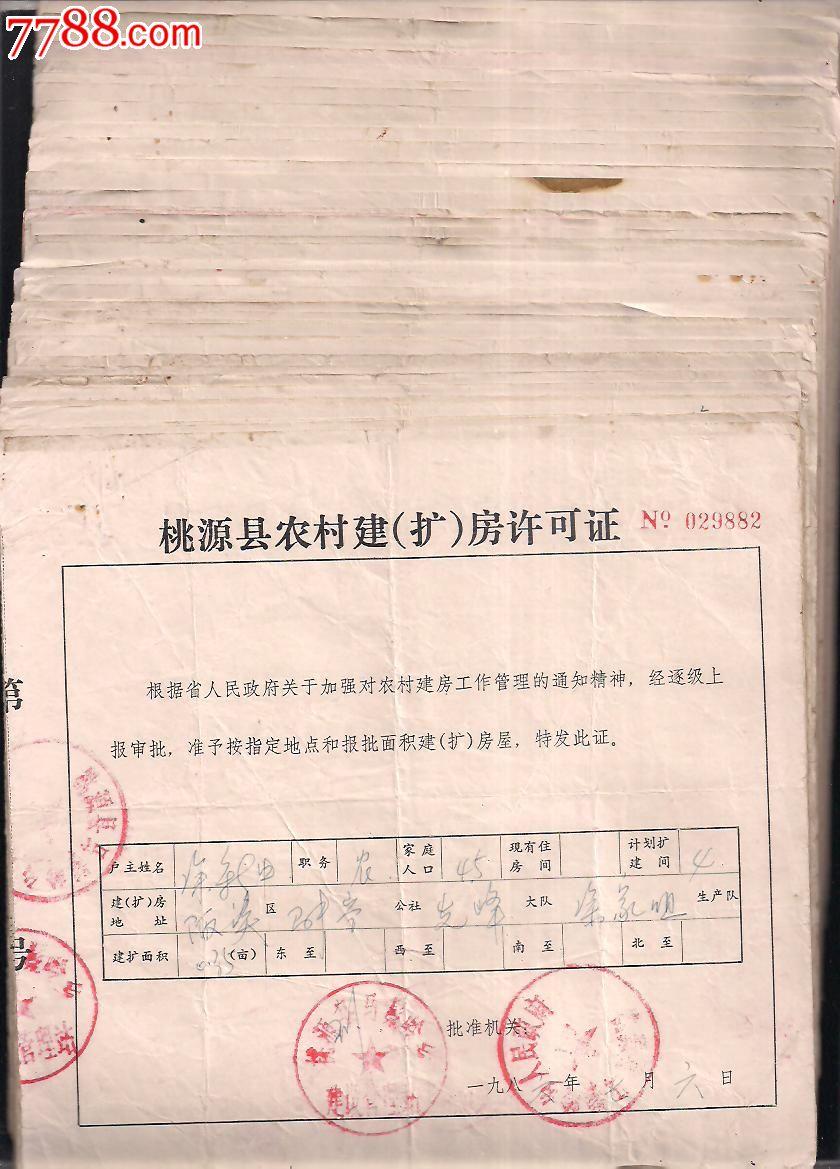 7788.com
桃源县农村建(扩)房许可证 Nº 029882
根据省人民政府关于加强对农村建房工作管理的通知精神，经逐级上
报审批，准予按指定地点和报批面积建(扩)房屋，特发此证。
第
号
户主姓名 职务 农 家庭人口 45 现有住房间 计划扩建间 4
建(扩)房地址 区 公社 先峰 大队 生产队
建扩面积 (亩) 东至 西至 南至 北至
批准机关：
一九八 年 月 六 日